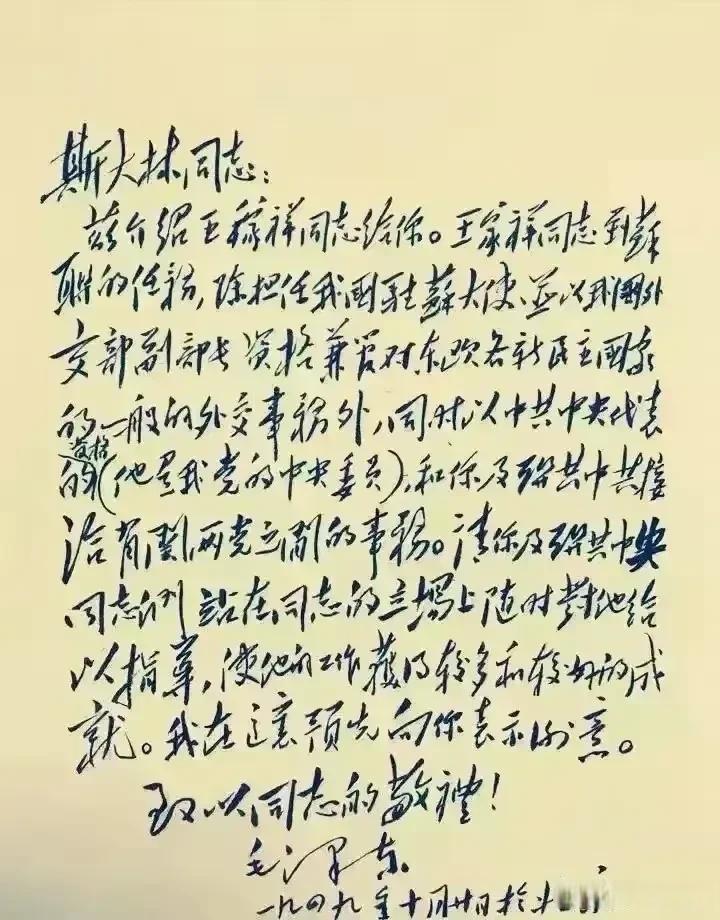 斯大林同志:
兹介绍王稼祥同志给你。王家祥同志到蘇
联的任務,除担任我國駐蘇大使、並以我國外
交部副部长资格兼管对东欧各新民主國家
的一般的外交事務外,同时以中共中央代表
资格
的(他是我党的中央委員),和你及联共中共接
洽有関两党之间的事務。请你及联共中央
同志们站在同志的立場上随时對他给
以指導,使他的工作獲得较多和较好的成
就。我在這裏预先向你表示谢意。
致以同志的敬禮!
毛泽东
一九四九年十月廿日於北